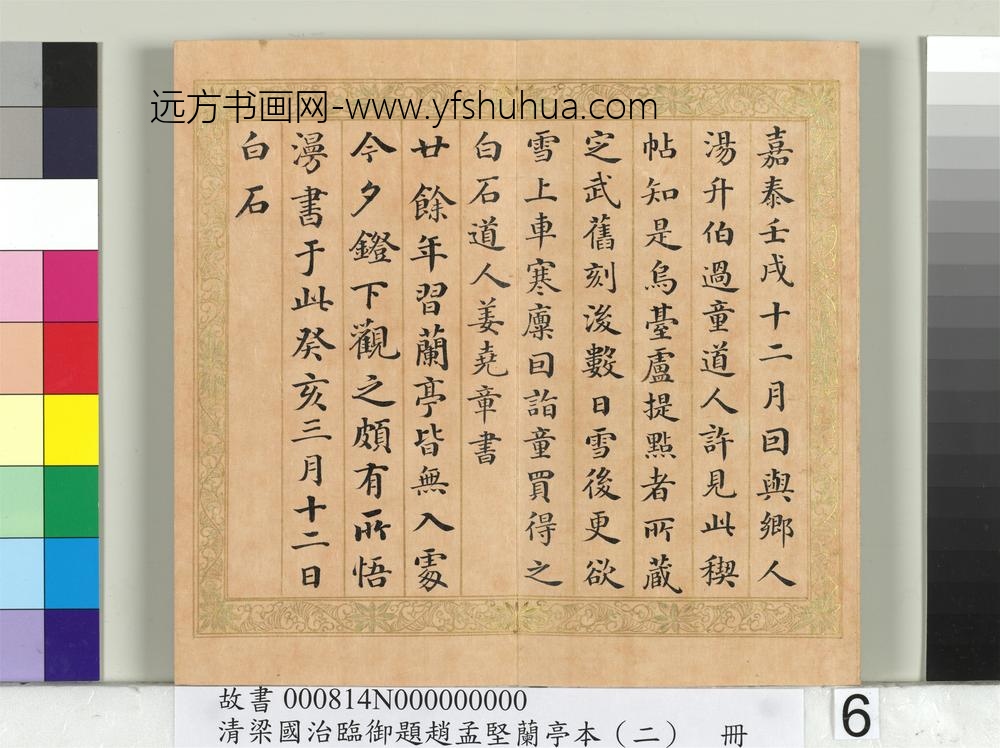 远方书画网-www.yfshuhua.com
嘉泰壬戌十二月回與鄉人
湯升伯過童道人許見此稧
帖知是烏臺盧提點者所藏
定武舊刻後數日雪後更欲
雪上車寒廩回詣童買得之
白石道人姜堯章書
廿餘年習蘭亭皆無入處
今夕鐙下觀之頗有所悟
漫書于此癸亥三月十二日
白石
故書 000814N000000000
清梁國治臨御題趙孟堅蘭亭本（二） 冊
6